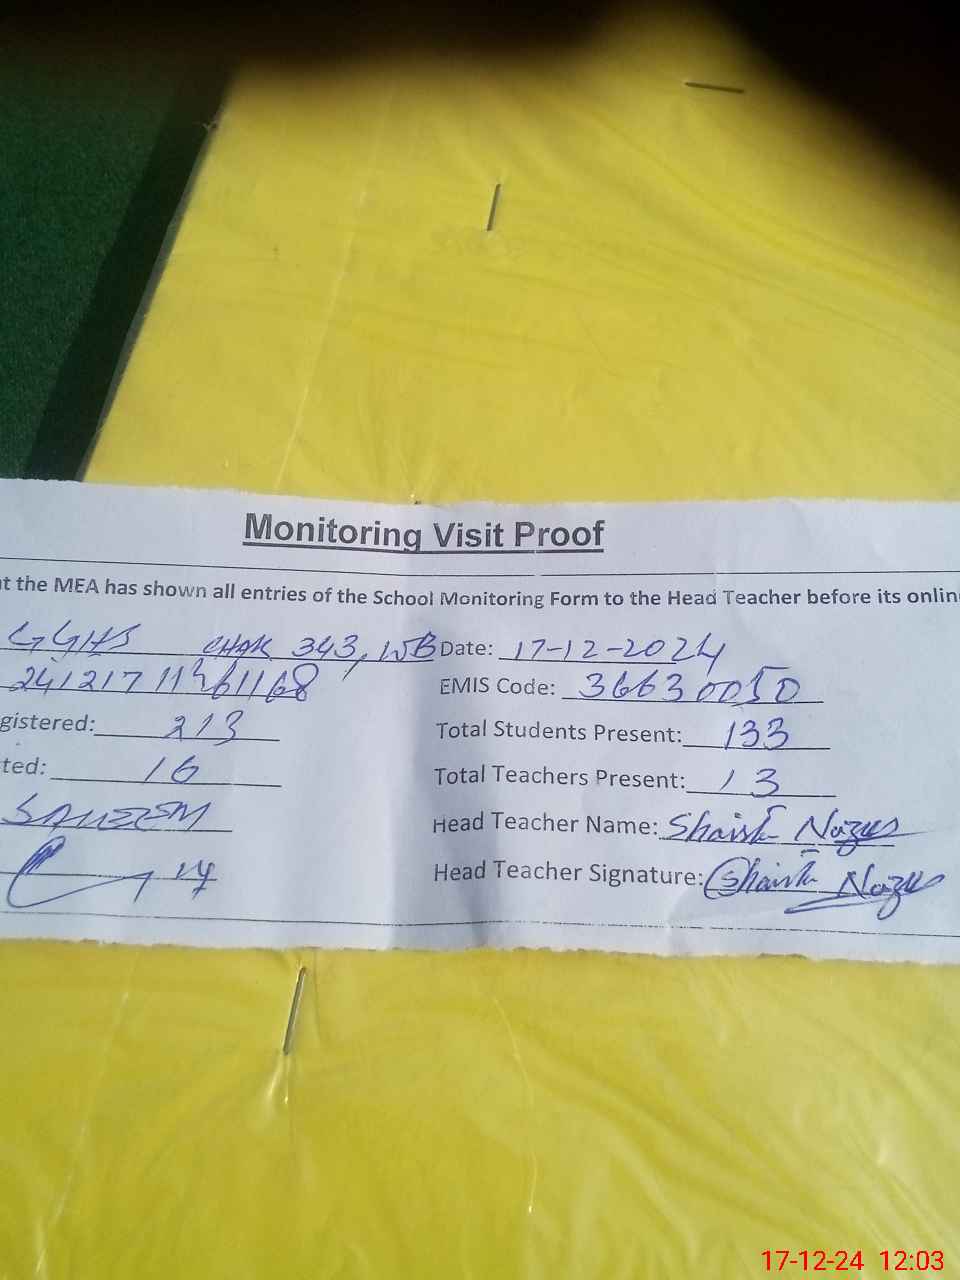 Monitoring Visit Proof
at the MEA has shown all entries of the School Monitoring Form to the Head Teacher before its onlin
GGHS CHAK 343, WB Date: 17-12-2024
EMIS Code: 36630050
gistered: 213 Total Students Present: 133
ted: 16 Total Teachers Present: 13
SALEEM Head Teacher Name: Shaista Nazus
Head Teacher Signature: Shaista Nazus
17-12-24 12:03